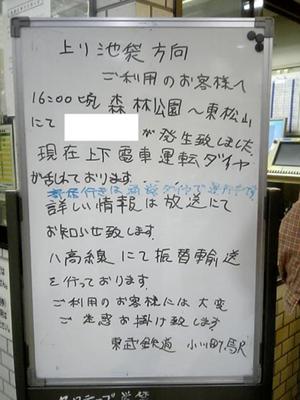 上り 池袋 方向
ご利用のお客様へ
16:00頃 森林公園～東松山
にて が発生致しました
現在上下電車運転ダイヤ
が乱れております
寄居行きは通常ダイヤで運行中です
詳しい情報は放送にて
お知らせ致します
八高線にて振替輸送
を行っております
ご利用のお客様には大変
ご迷惑お掛け致します
東武鉄道 小川町駅